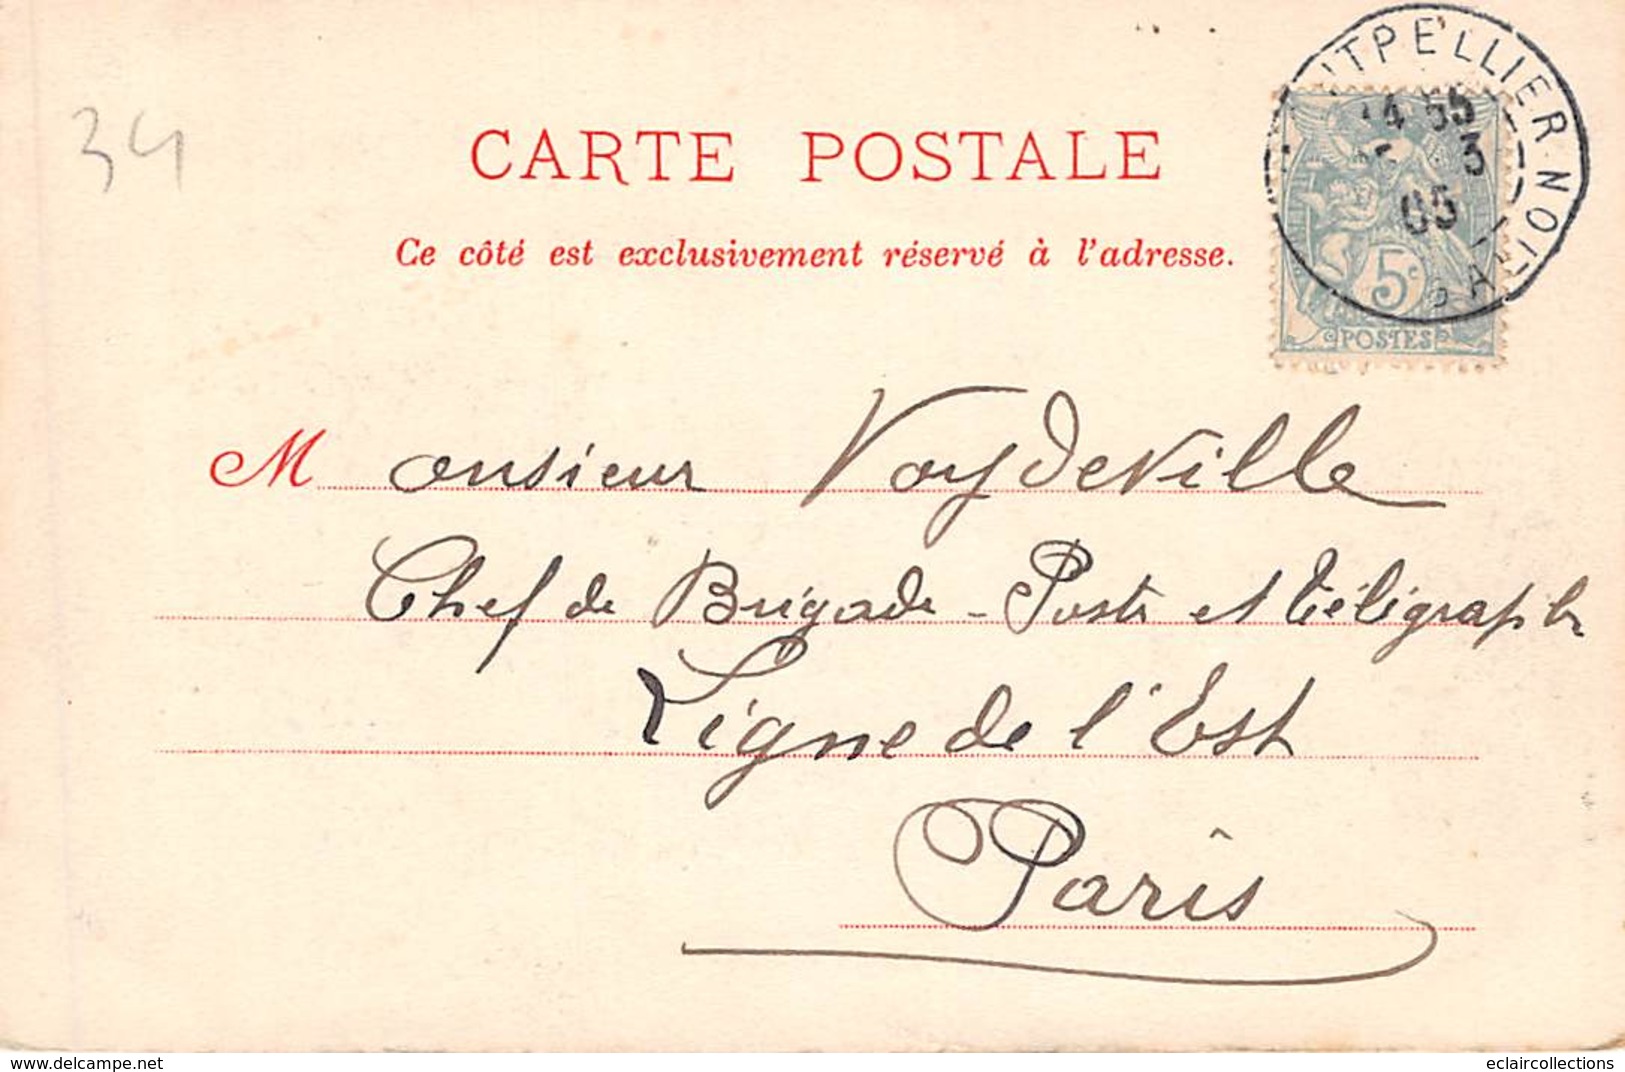 34
CARTE POSTALE
Ce côté est exclusivement réservé à l'adresse.
14 55
3
05
5c
POSTES
Monsieur Voydeville
Chef de Brigade - Poste et Télégraphe
Ligne de l'Est
Paris
www.delcampe.net
eclaircollections